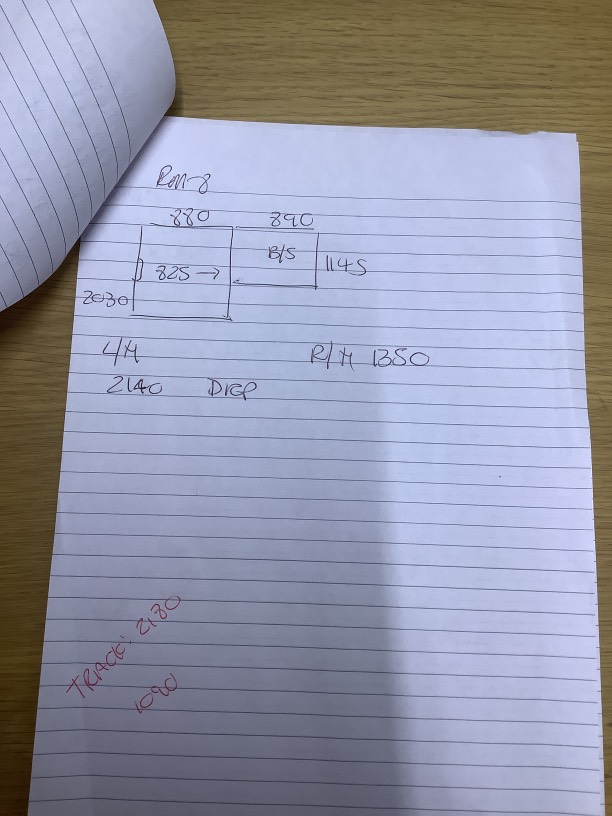 Rm-8
880 890
B/S
825 → 1145
2030
L/H R/H 1350
2140 DROP
TRACK: 2180
1090